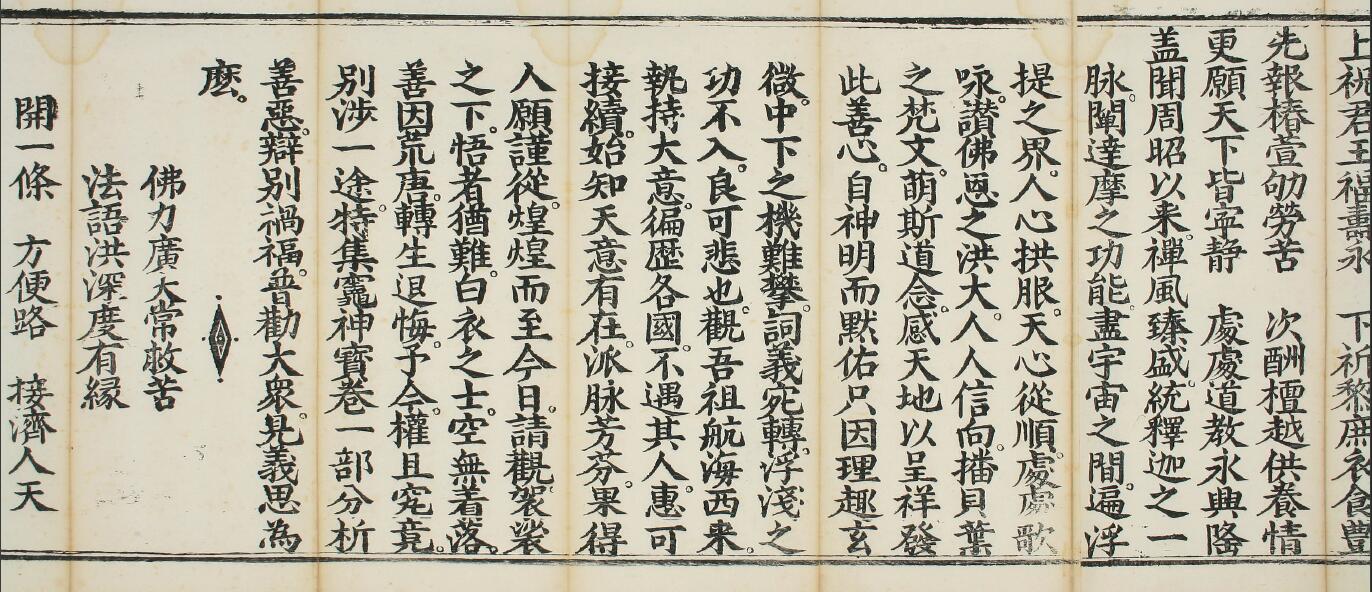 上祝君王福壽永　下祈黎庶衣食豐
先報椿萱劬勞苦　次酬檀越供養情
更願天下皆寧静　處處道教永興隆
盖聞周昭以来。禪風臻盛。統釋迦之一
脉。闡達摩之功能。盡宇宙之間。遍浮
提之界。人心拱服。天心從順。處處歌
咏。讚佛恩之洪大。人人信向。播貝葉
之梵文。萌斯道念。感天地以呈祥。發
此善心。自神明而默佑。只因理趣玄
微。中下之機難攀。詞義宛轉。浮淺之
功不入。良可悲也。觀吾祖航海西来。
執持大意。徧歷各國。不遇其人。惠可
接續。始知天意有在。派脉芳芬。果得
人願謹從。煌煌而至今日。請觀袈裟
之下。悟者猶難。白衣之士。空無着落。
善因荒唐。轉生退悔。予今權且究竟。
別渉一途。特集竈神寳卷一部。分析
善惡。辯別禍福。普勸大衆。見義思為
麽。
佛力廣大常救苦
法語洪深度有縁
開一條　方便路　接濟人天